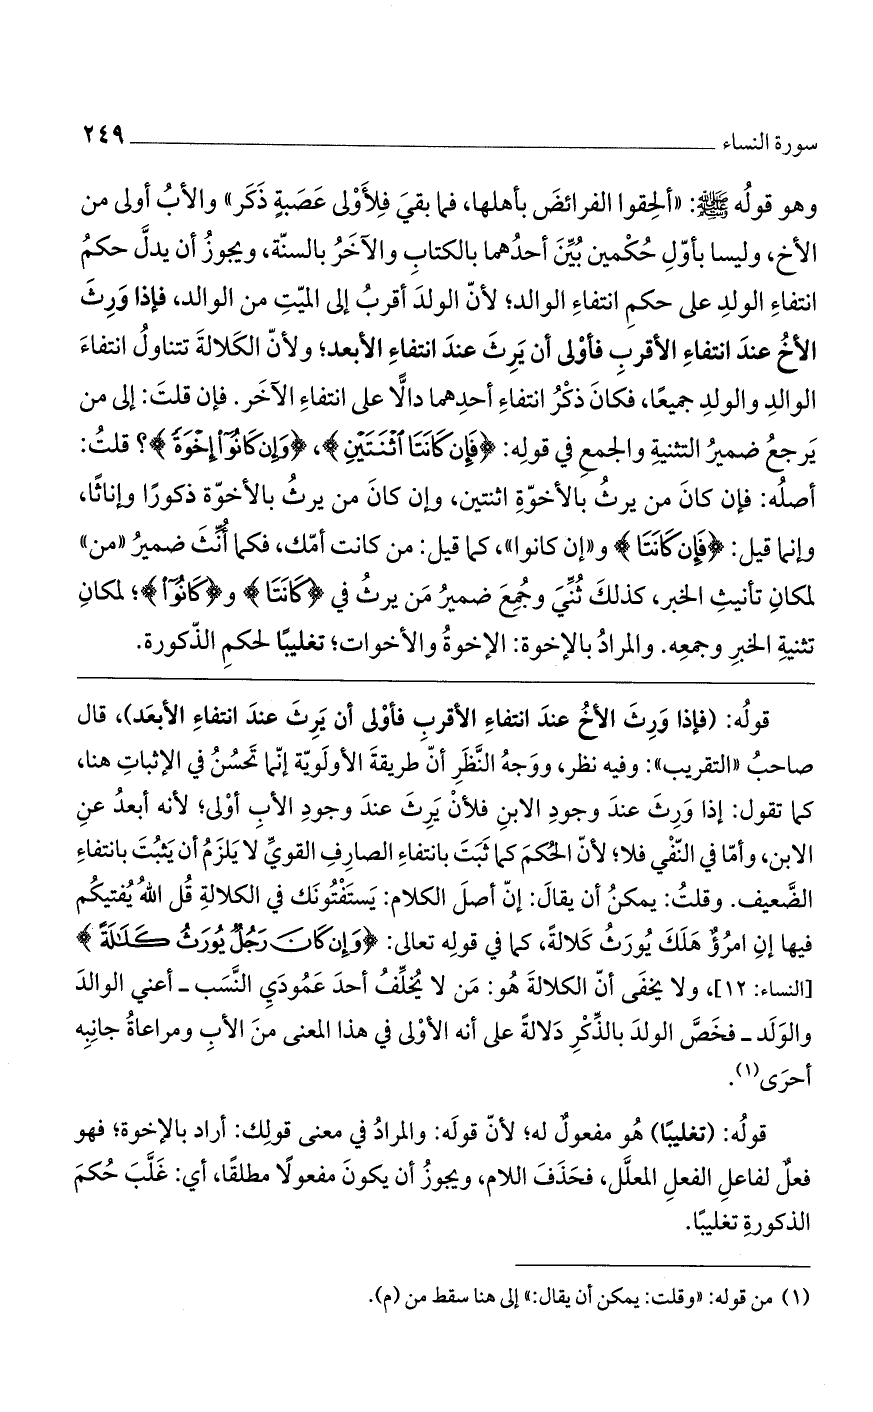 سورة النساء ٢٤٩
وهو قولُه ﷺ: «ألحِقوا الفرائضَ بأهلها، فما بقيَ فِلأَوْلى عَصَبةٍ ذَكَر» والأبُ أولى من
الأخ، وليسا بأوّلِ حُكْمين بُيِّنَ أحدُهما بالكتابِ والآخَرُ بالسنّة، ويجوزُ أن يدلَّ حكمُ
انتفاءِ الولدِ على حكمِ انتفاءِ الوالد؛ لأنّ الولدَ أقربُ إلى الميّتِ من الوالد، فإذا وَرِثَ
الأخُ عندَ انتفاءِ الأقربِ فأَوْلى أن يَرِثَ عندَ انتفاءِ الأبعد؛ ولأنّ الكَلالةَ تتناولُ انتفاءَ
الوالدِ والولدِ جميعًا، فكانَ ذكْرُ انتفاءِ أحدِهما دالًّا على انتفاءِ الآخَر. فإن قلتَ: إلى من
يَرجعُ ضميرُ التثنيةِ والجمعِ في قولِه: ﴿فَإِن كَانَتَا ٱثْنَتَيْنِ﴾، ﴿وَإِن كَانُوٓا۟ إِخْوَةً﴾؟ قلتُ:
أصلُه: فإن كانَ من يرثُ بالأخوّةِ اثنتين، وإن كانَ من يرثُ بالأخوّة ذكورًا وإناثًا،
وإنما قيل: ﴿فَإِن كَانَتَا﴾ و«إن كانوا»، كما قيل: من كانت أمّك، فكما أُنِّثَ ضميرُ «من»
لمكانِ تأنيثِ الخبر، كذلكَ ثُنِّيَ وجُمِعَ ضميرُ مَن يرثُ في ﴿كَانَتَا﴾ و﴿كَانُوٓا۟﴾؛ لمكانِ
تثنيةِ الخبرِ وجمعِه. والمرادُ بالإخوة: الإخوةُ والأخوات؛ تغليبًا لحكمِ الذّكورة.
قولُه: (فإذا وَرِثَ الأخُ عندَ انتفاءِ الأقربِ فأوْلى أن يَرِثَ عندَ انتفاءِ الأبعَد)، قال
صاحبُ «التقريب»: وفيه نظر، ووَجهُ النَّظَرِ أنّ طريقةَ الأولَويّة إنّما تَحسُنُ في الإثباتِ هنا،
كما تقول: إذا وَرِثَ عندَ وجودِ الابنِ فلأنْ يَرِثَ عندَ وجودِ الأبِ أوْلى؛ لأنه أبعدُ عنِ
الابن، وأمّا في النّفْي فلا؛ لأنّ الحُكمَ كما ثَبَتَ بانتفاءِ الصارِفِ القويِّ لا يَلزَمُ أن يَثبُتَ بانتفاءِ
الضَّعيف. وقلتُ: يمكنُ أن يقالَ: إنّ أصلَ الكلام: يَستَفْتُونَك في الكلالةِ قُل اللهُ يُفتيكُم
فيها إنِ امرُؤٌ هَلَكَ يُورَثُ كَلالةً، كما في قولِه تعالى: ﴿وَإِن كَانَ رَجُلٌ يُورَثُ كَلَٰلَةً﴾
[النساء: ١٢]، ولا يخفَى أنّ الكلالةَ هُو: مَن لا يُخلِّفُ أحدَ عَمُودَيِ النَّسَب ـ أعني الوالدَ
والوَلَد ـ فخَصَّ الولدَ بالذِّكْرِ دَلالةً على أنه الأوْلى في هذا المعنى منَ الأبِ ومراعاةُ جانِبِه
أحرَى(١).
قولُه: (تغليبًا) هُو مفعولٌ له؛ لأنّ قولَه: والمرادُ في معنى قولِك: أراد بالإخوة؛ فهو
فعلٌ لفاعلِ الفعلِ المعلَّل، فحَذَفَ اللام، ويجوزُ أن يكونَ مفعولًا مطلقًا، أي: غَلَّبَ حُكمَ
الذكورةِ تغليبًا.
(١) من قوله: «وقلت: يمكن أن يقال:» إلى هنا سقط من (م).